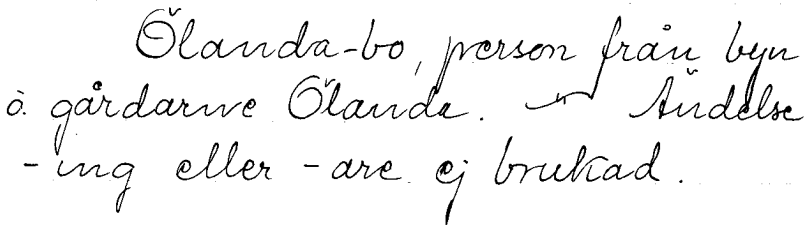 Ölanda-bo, person från byn
o. gårdarne Ölanda. — Ändelse
-ing eller -are ej brukad.